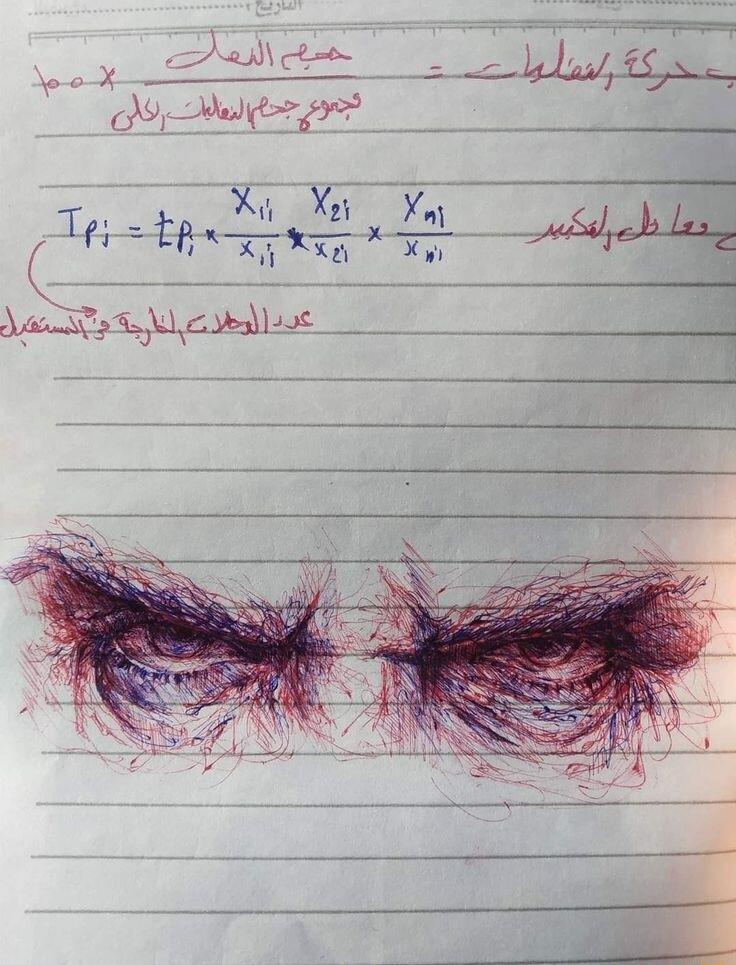 التاريخ
حركة التقلبات = حجم النقل / مجموع حجم التقلبات الكلي × ١٠٠
معامل التكبير Tpi = tpi × X1i/x1i × X2i/x2i × Xni/xni
عدد الرحلات الخارجة في المستقبل